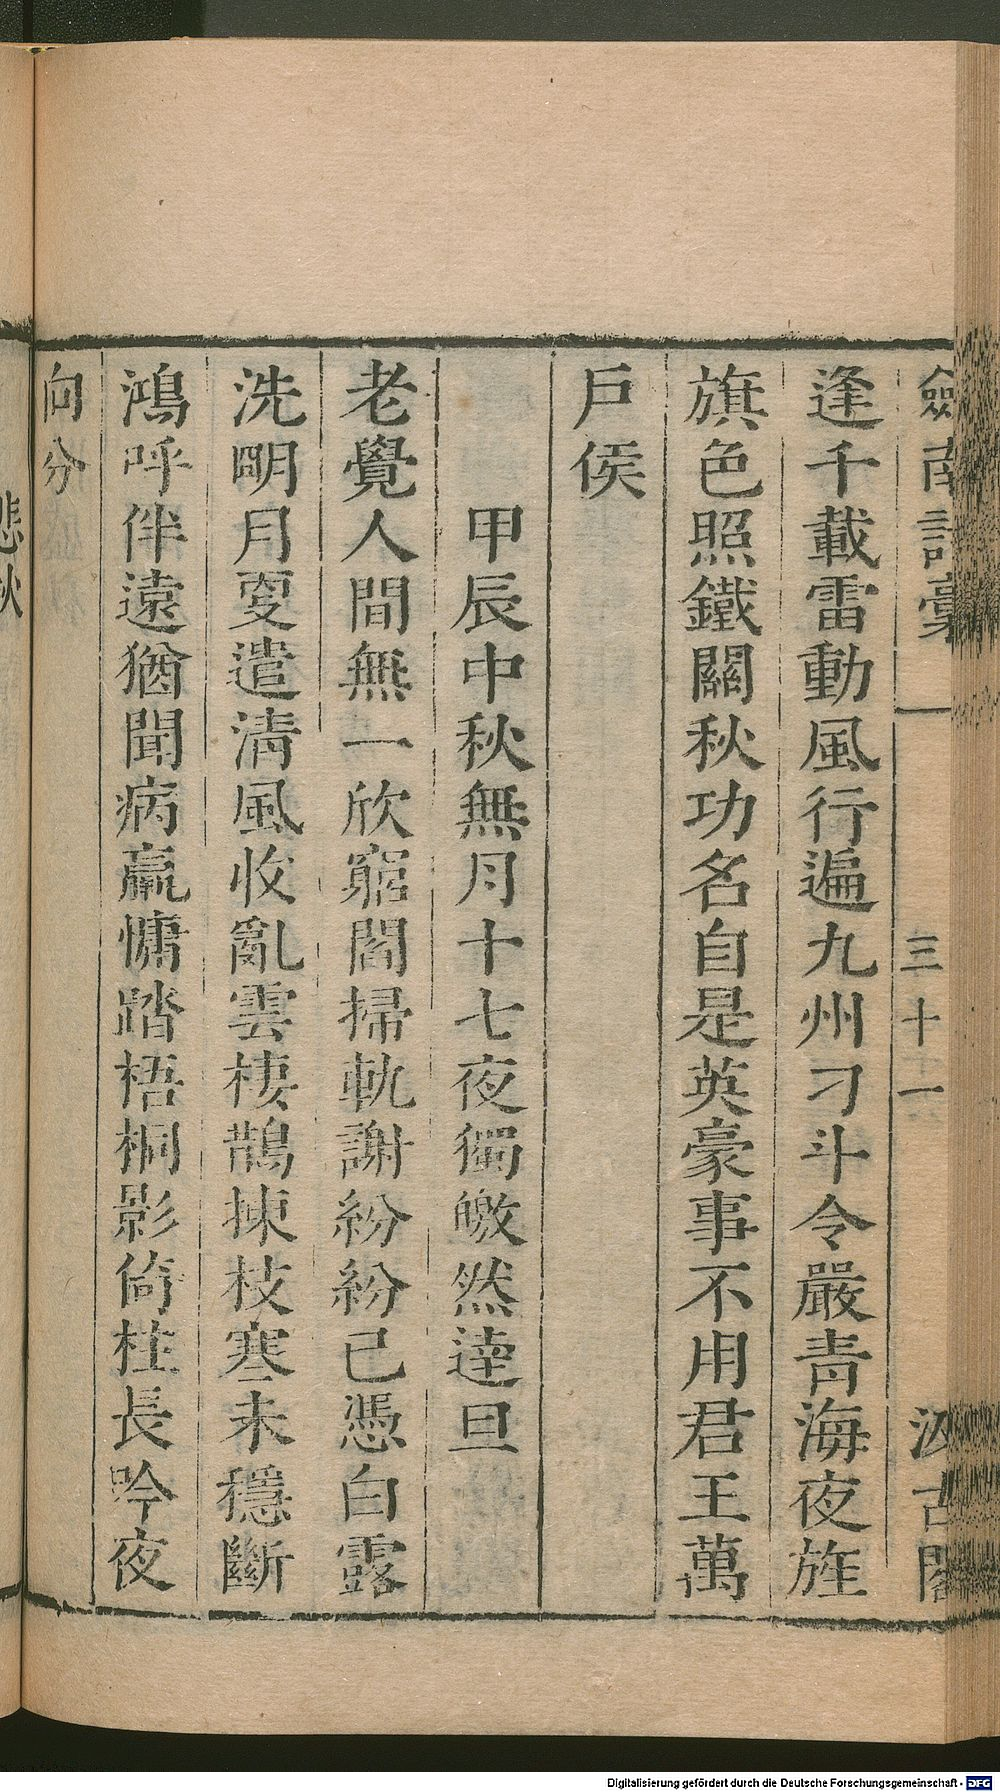 劒南詩稾 三十一 汲古閣
逢千載雷動風行遍九州刁斗令嚴青海夜旌
旗色照鐵關秋功名自是英豪事不用君王萬
戶侯
甲辰中秋無月十七夜獨皦然達旦
老覺人間無一欣窮閻掃軌謝紛紛已憑白露
洗明月更遣清風收亂雲棲鵲揀枝寒未穩斷
鴻呼伴遠猶聞病羸慵踏梧桐影倚柱長吟夜
向分
悲秋
Digitalisierung gefördert durch die Deutsche Forschungsgemeinschaft - DFG